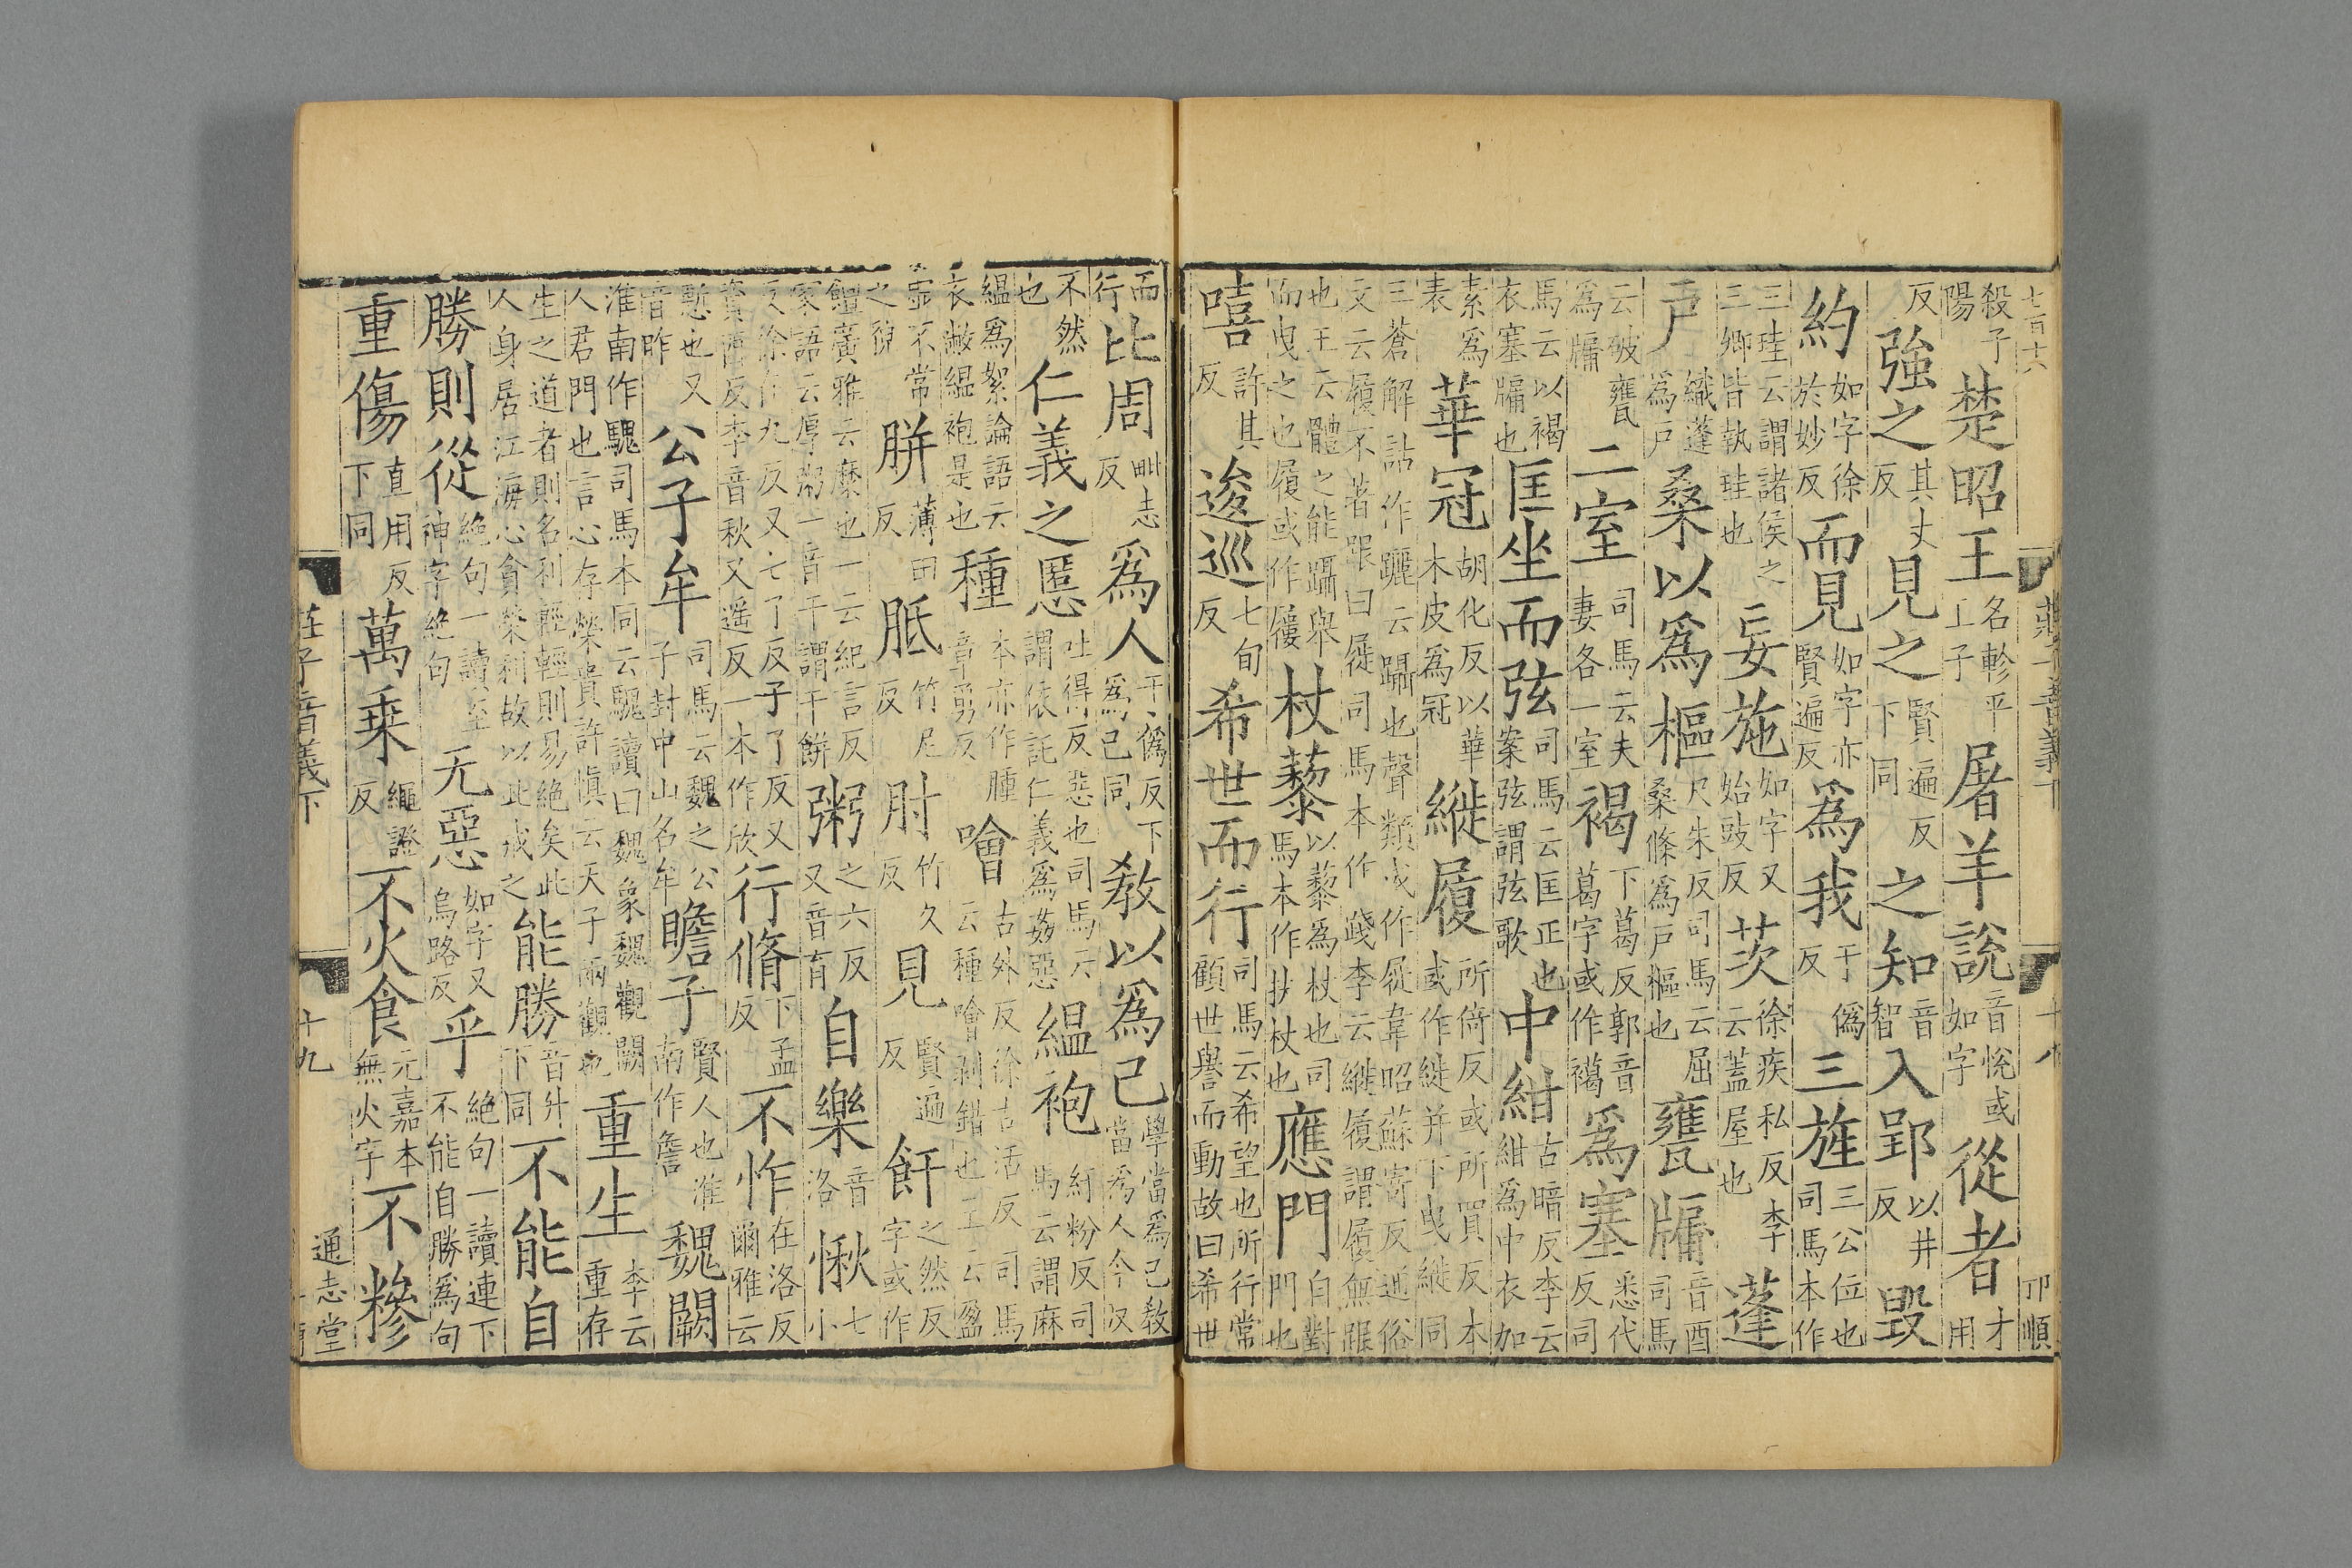 七百十六 莊子音義下 十八 邛順
殺子陽 楚昭王 名軫平王子 屠羊說 音悅或如字 從者 才用
反 強之 其丈反 見之 賢遍反下同 之知 音智 入郢 以井反 毀
約 如字徐於妙反 而見 如字亦賢遍反 爲我 于僞反 三旌 三公位也司馬本作
三珪云謂諸侯之三卿皆執珪也 妄施 如字又始豉反 茨 徐疾私反李云蓋屋也 蓬
戶 織蓬爲戶 桑以爲樞 尺朱反司馬云屈桑條爲戶樞也 甕牖 音酉司馬
云破甕爲牖 二室 司馬云夫妻各一室 褐 下葛反郭音葛字或作䙝 爲塞 悉代反司
馬云以褐衣塞牖也 匡坐而弦 司馬云匡正也案弦謂弦歌 中紺 古暗反李云紺爲中衣加
素爲表 華冠 胡化反以華木皮爲冠 縰履 所倚反或所買反本或作縰并下曳縰同
三蒼解詁作躧云躡也聲類或作屣韋昭蘇寄反通俗文云履不著跟曰屣司馬本作踐李云縰履謂履無跟
也王云體之能躡舉而曳之也履或作屨 杖藜 以藜爲杖也司馬本作扶杖也 應門 自對門也
嘻 許其反 逡巡 七旬反 希世而行 司馬云希望也所行常顧世譽而動故曰希世
而行 比周 毗志反 爲人 于僞反下爲己同 教以爲己 學當爲己教當爲人今反
不然也 仁義之慝 吐得反惡也司馬云謂依託仁義爲姦惡 縕袍 紆粉反司馬云謂麻
縕爲絮論語云衣敝縕袍是也 種 本亦作腫章勇反 噲 古外反徐古活反司馬云種噲剥錯也王云盈
虛不常之貌 胼 薄田反 胝 竹尼反 肘 竹久反 見 賢遍反 飦 之然反字或作
饘廣雅云糜也一云紀言反家語云厚粥一音干謂干餅 粥 之六反又音育 自樂 音洛 愀 七小
反徐在九反又七了反子了反又資酉反李音秋又遥反一本作欣 行脩 下孟反 不怍 在洛反爾雅云
慙也又音昨 公子牟 司馬云魏之公子封中山名牟 瞻子 賢人也淮南作詹 魏闕
淮南作魏司馬本同云魏讀曰魏象魏觀闕人君門也言心存榮貴許慎云天子兩觀也 重生 李云重存
生之道者則名利輕輕則易絶矣此人身居江海心貪榮利故以此戒之 能勝 音升下同 不能自
勝則從 絶句一讀至神字絶句 无惡 如字又烏路反 乎 絶句一讀連下不能自勝爲句
重傷 直用反下同 萬乘 繩證反 不火食 元嘉本無火字 不糝
莊子音義下 十九 通志堂